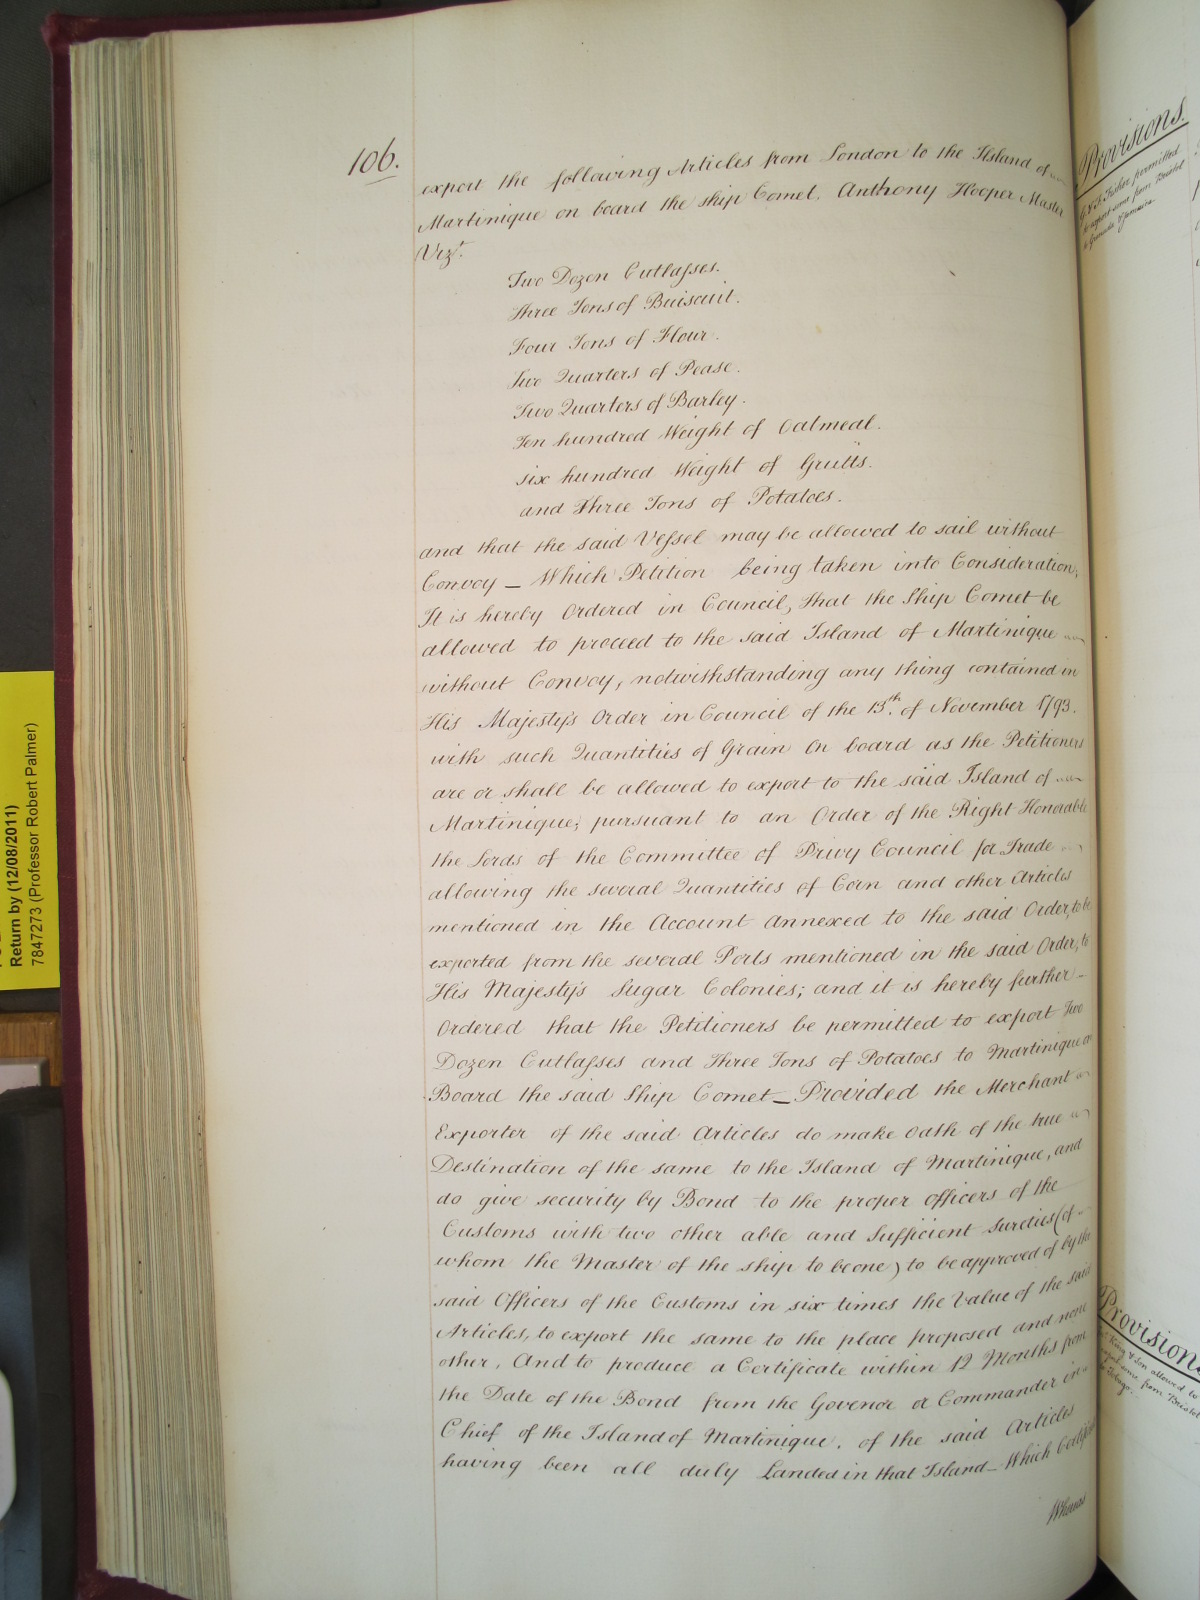 106.
export the following Articles from London to the Island of
Martinique on board the ship Comet, Anthony Hooper Master
Vizt.
Two Dozen Cutlasses.
Three Tons of Buiscuit.
Four Tons of Flour.
Two Quarters of Pease.
Two Quarters of Barley.
Ten hundred Weight of Oatmeal.
six hundred Weight of Grutts.
and Three Tons of Potatoes.
and that the said Vessel may be allowed to sail without
Convoy – Which Petition being taken into Consideration,
It is hereby Ordered in Council, that the Ship Comet be
allowed to proceed to the said Island of Martinique
without Convoy, notwithstanding any thing contained in
His Majesty's Order in Council of the 13th. of November 1793.
with such Quantities of Grain on board as the Petitioners
are or shall be allowed to export to the said Island of
Martinique; pursuant to an Order of the Right Honorable
the Lords of the Committee of Privy Council for Trade
allowing the several Quantities of Corn and other Articles
mentioned in the Account annexed to the said Order, to be
exported from the several Ports mentioned in the said Order, to
His Majesty's Sugar Colonies; and it is hereby further –
Ordered that the Petitioners be permitted to export Two
Dozen Cutlasses and Three Tons of Potatoes to Martinique on
Board the said Ship Comet – Provided the Merchant
Exporter of the said Articles do make Oath of the true
Destination of the same to the Island of Martinique, and
do give security by Bond to the proper officers of the
Customs with two other able and Sufficient Sureties (of
whom the Master of the ship to be one) to be approved of by the
said Officers of the Customs in six times the Value of the said
Articles, to export the same to the place proposed and none
other, And to produce a Certificate within 12 Months from
the Date of the Bond from the Govenor or Commander in
Chief of the Island of Martinique, of the said Articles
having been all duly Landed in that Island – Which
Whereas
Provisions.
G. & S. Fisher permitted
to export some from Bristol
to Grenada & Jamaica.
Provisions
King & Son allowed to
export some from Bristol
to Tobago.
Return by (12/08/2011)
7847273 (Professor Robert Palmer)